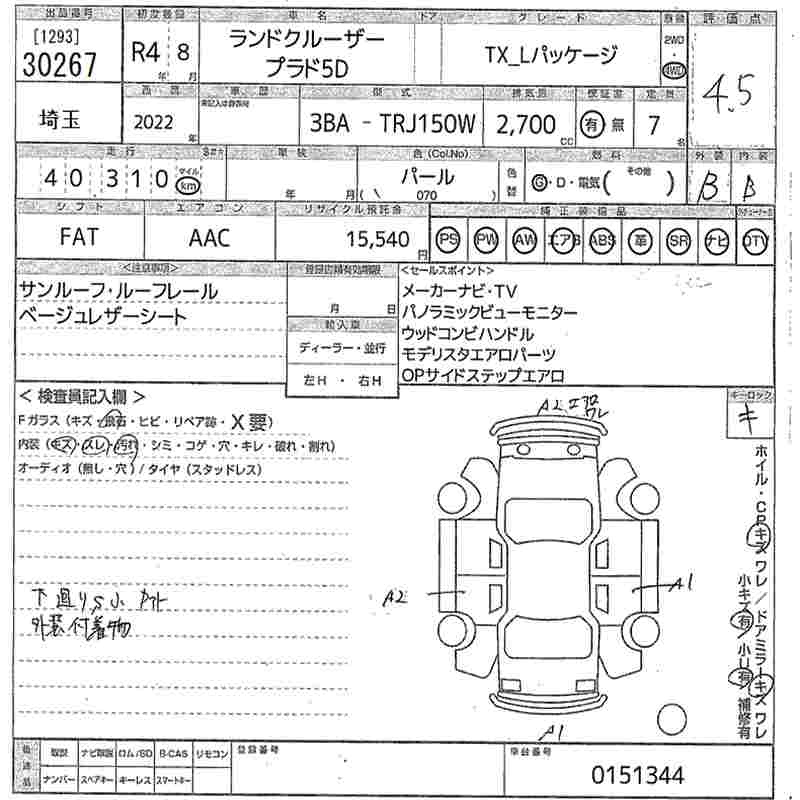 出品番号 初度登録 車名 ドア グレード 駆動 評価点
[1293]
30267 R4 8 年 月 ランドクルーザー プラド5D TX_Lパッケージ 2WD ・ 4WD 4.5
西暦 車歴 型式 排気量 保証書 定員
埼玉 2022 年 未記入は自家用 3BA - TRJ150W 2,700 CC 有 無 7 名
走行 車検 色(Col.No) 燃料 外装 内装
40,310 マイル km 年 月 パール ( \ 070 ) 色替 G・D・電気( その他 ) B B
シフト エアコン リサイクル預託金 純正装備品
FAT AAC 15,540 円 PS PW AW エアB ABS 革 SR ナビ DTV
<注意事項> 登録店舗有効期限 <セールスポイント>
サンルーフ・ルーフレール 月 日 メーカーナビ・TV
ベージュレザーシート 輸入車 パノラミックビューモニター
ディーラー・並行 ウッドコンビハンドル
左H ・ 右H モデリスタエアロパーツ
OPサイドステップエアロ
<検査員記入欄> キーロック
キ
Fガラス (キズ・飛石・ヒビ・リペア跡・X要)
内装 (キズ・スレ・汚れ・シミ・コゲ・穴・キレ・破れ・割れ)
オーディオ (無し・穴) / タイヤ (スタッドレス)
A2 エアロ ワレ
A2 A1
A1
下廻りS小
外装付着物
ホイル・CPキズ ワレ / ドアミラーキズ ワレ
小キズ有 / 小U有 補修有
後送品 取説 ナビ取説 ロム/SD B-CAS リモコン 登録番号 車台番号
ナンバー スペアキー キーレス スマートキー 0151344